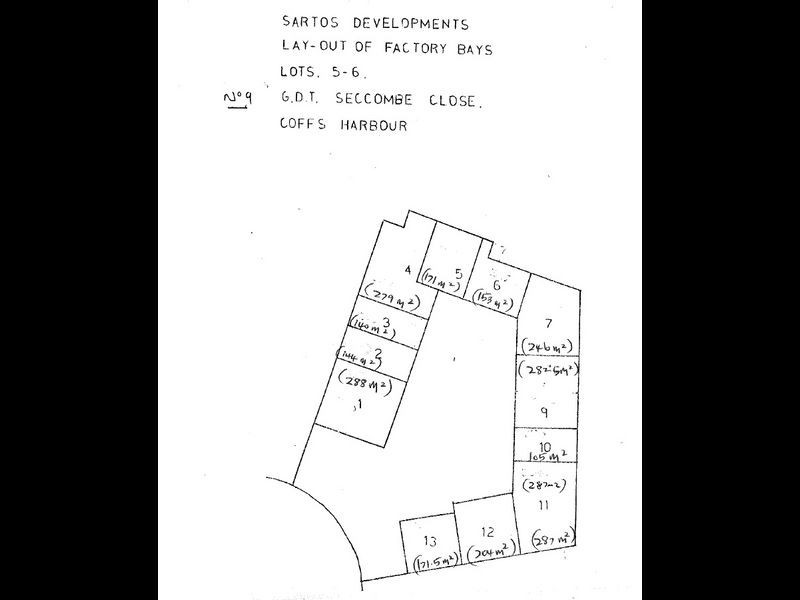 SARTOS DEVELOPMENTS
LAY-OUT OF FACTORY BAYS
LOTS. 5-6.
Nº9 G.D.T. SECCOMBE CLOSE.
COFFS HARBOUR
4
(279 m²)
5
(171 m²)
6
(153 m²)
3
(140 m²)
2
(144 m²)
(288 m²)
1
7
(246 m²)
(287.5m²)
9
10
105 m²
(287m2)
11
(287 m²)
12
(204 m²)
13
(171.5m²)